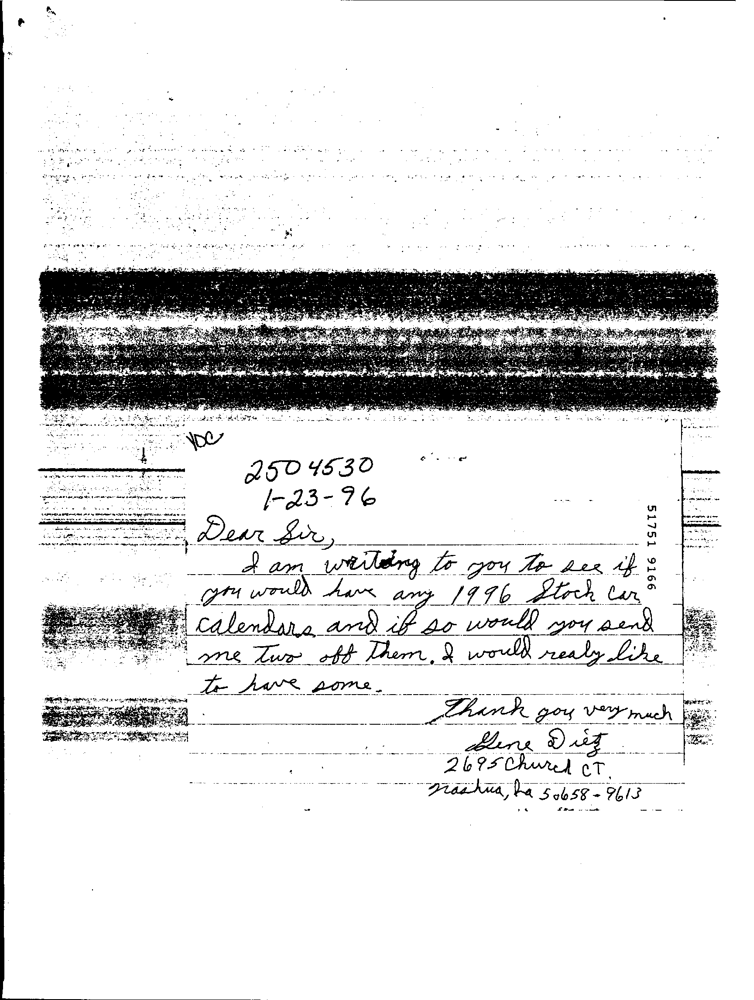 VOC
2504530
1-23-96
Dear Sir,
I am writeing to you to see if
you would have any 1996 Stock car
calendars and if so would you send
me two off them. I would realy like
to have some.
Thank you very much
Gene Dietz
2695 Church CT.
Nashua, Ia 50658-9613
51751 9166